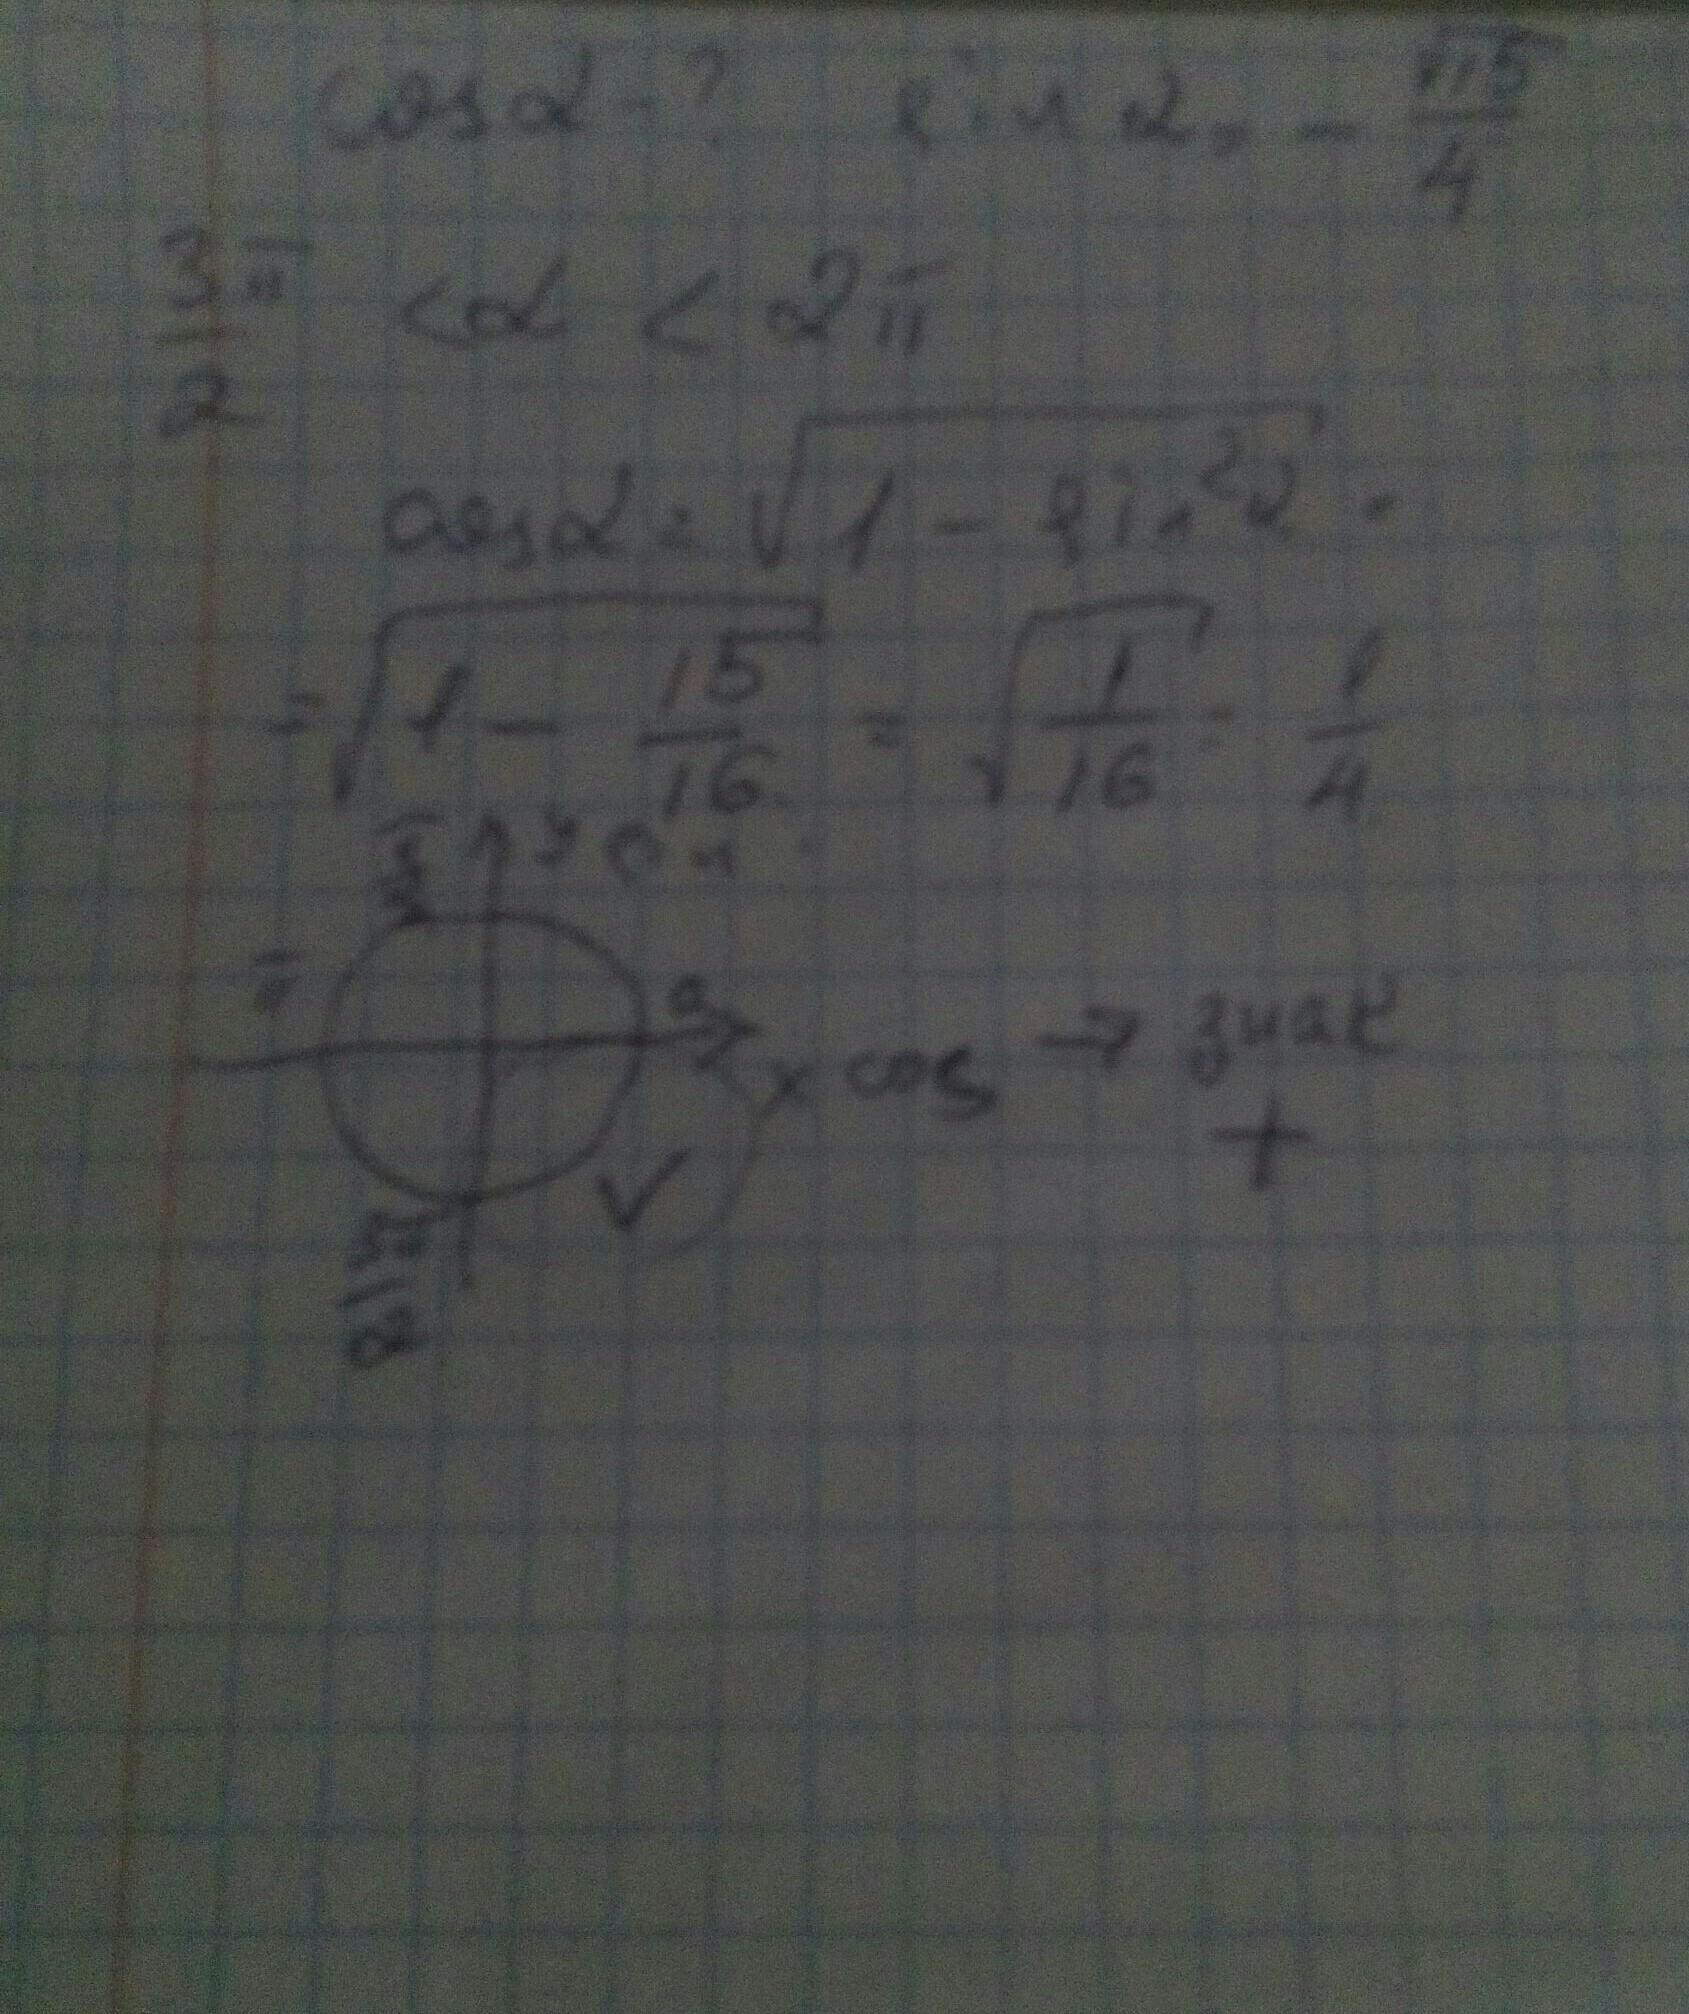 cosα - ? sin α = - √15/4
3π/2 < α < 2π
cosα = √(1 - sin²α) =
= √(1 - 15/16) = √(1/16) = 1/4
π/2 y
π 0
x cos → знак
+
3π/2